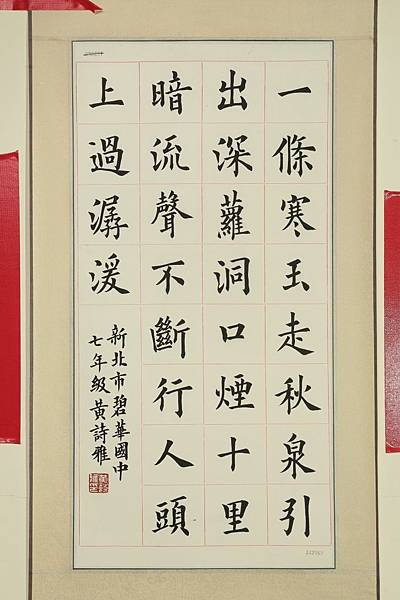 一條寒玉走秋泉引
出深蘿洞口煙十里
暗流聲不斷行人頭
上過潺湲
新北市碧華國中
七年級黃詩雅